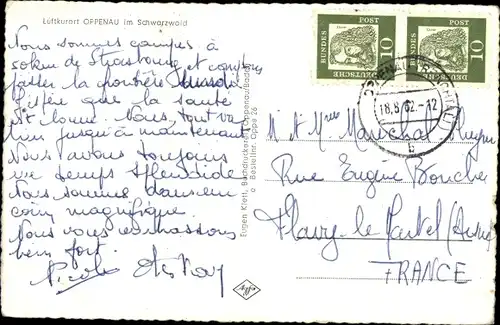 Luftkurort OPPENAU im Schwarzwald
Nous sommes campés à
50km de Strasbourg et comptons
passer la frontière aussi
que la santé
est bonne. Nous, tout va
bien jusqu'à maintenant
Nous avons toujours
un temps splendide
Nous sommes dans un
coin magnifique.
Nous vous embrassons
bien fort.
Nicole
Eugen Klett, Buchdruckerei, Oppenau/Baden
Bestellnr. Oppe 26
Agfa
DEUTSCHE
BUNDES
POST
10
DEUTSCHE
BUNDES
POST
10
OPPENAU
18.8.62-12
b
M et Mme Maréchal
Rue Eugène Boucher
Flavy-le-Martel (Aisne)
FRANCE